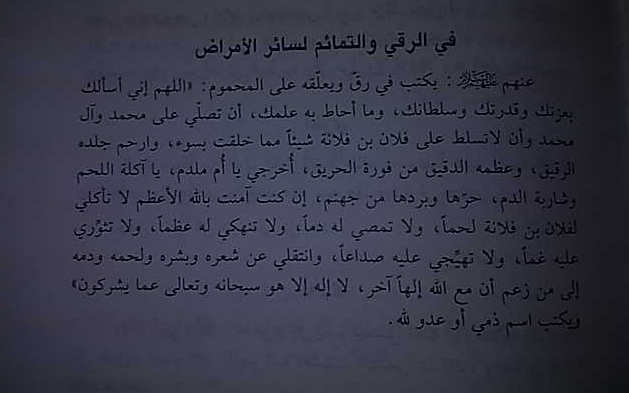 في الرقي والتمائم لسائر الأمراض
عنهم عليهم السلام : يكتب في رق ويعلّقه على المحموم: «اللهم إني أسألك
بعزتك وقدرتك وسلطانك، وما أحاط به علمك، أن تصلّي على محمد وآل
محمد وأن لاتسلط على فلان بن فلانة شيئاً مما خلقت بسوء، وارحم جلده
الرقيق، وعظمه الدقيق من فورة الحريق، أُخرجي يا أُم ملدم، يا آكلة اللحم
وشاربة الدم، حرّها وبردها من جهنم، إن كنت آمنت بالله الأعظم لا تأكلي
لفلان بن فلانة لحماً، ولا تمصي له دماً، ولا تنهكي له عظماً، ولا تثوِّري
عليه غماً، ولا تهيِّجي عليه صداعاً، وانتقلي عن شعره وبشره ولحمه ودمه
إلى من زعم أن مع الله إلهاً آخر، لا إله إلا هو سبحانه وتعالى عما يشركون»
ويكتب اسم ذمي أو عدو لله.